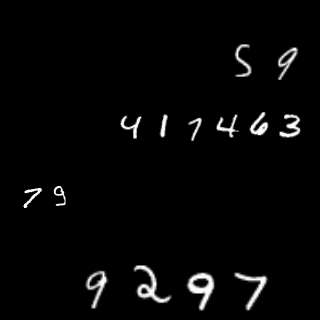 59
417463
79
9297